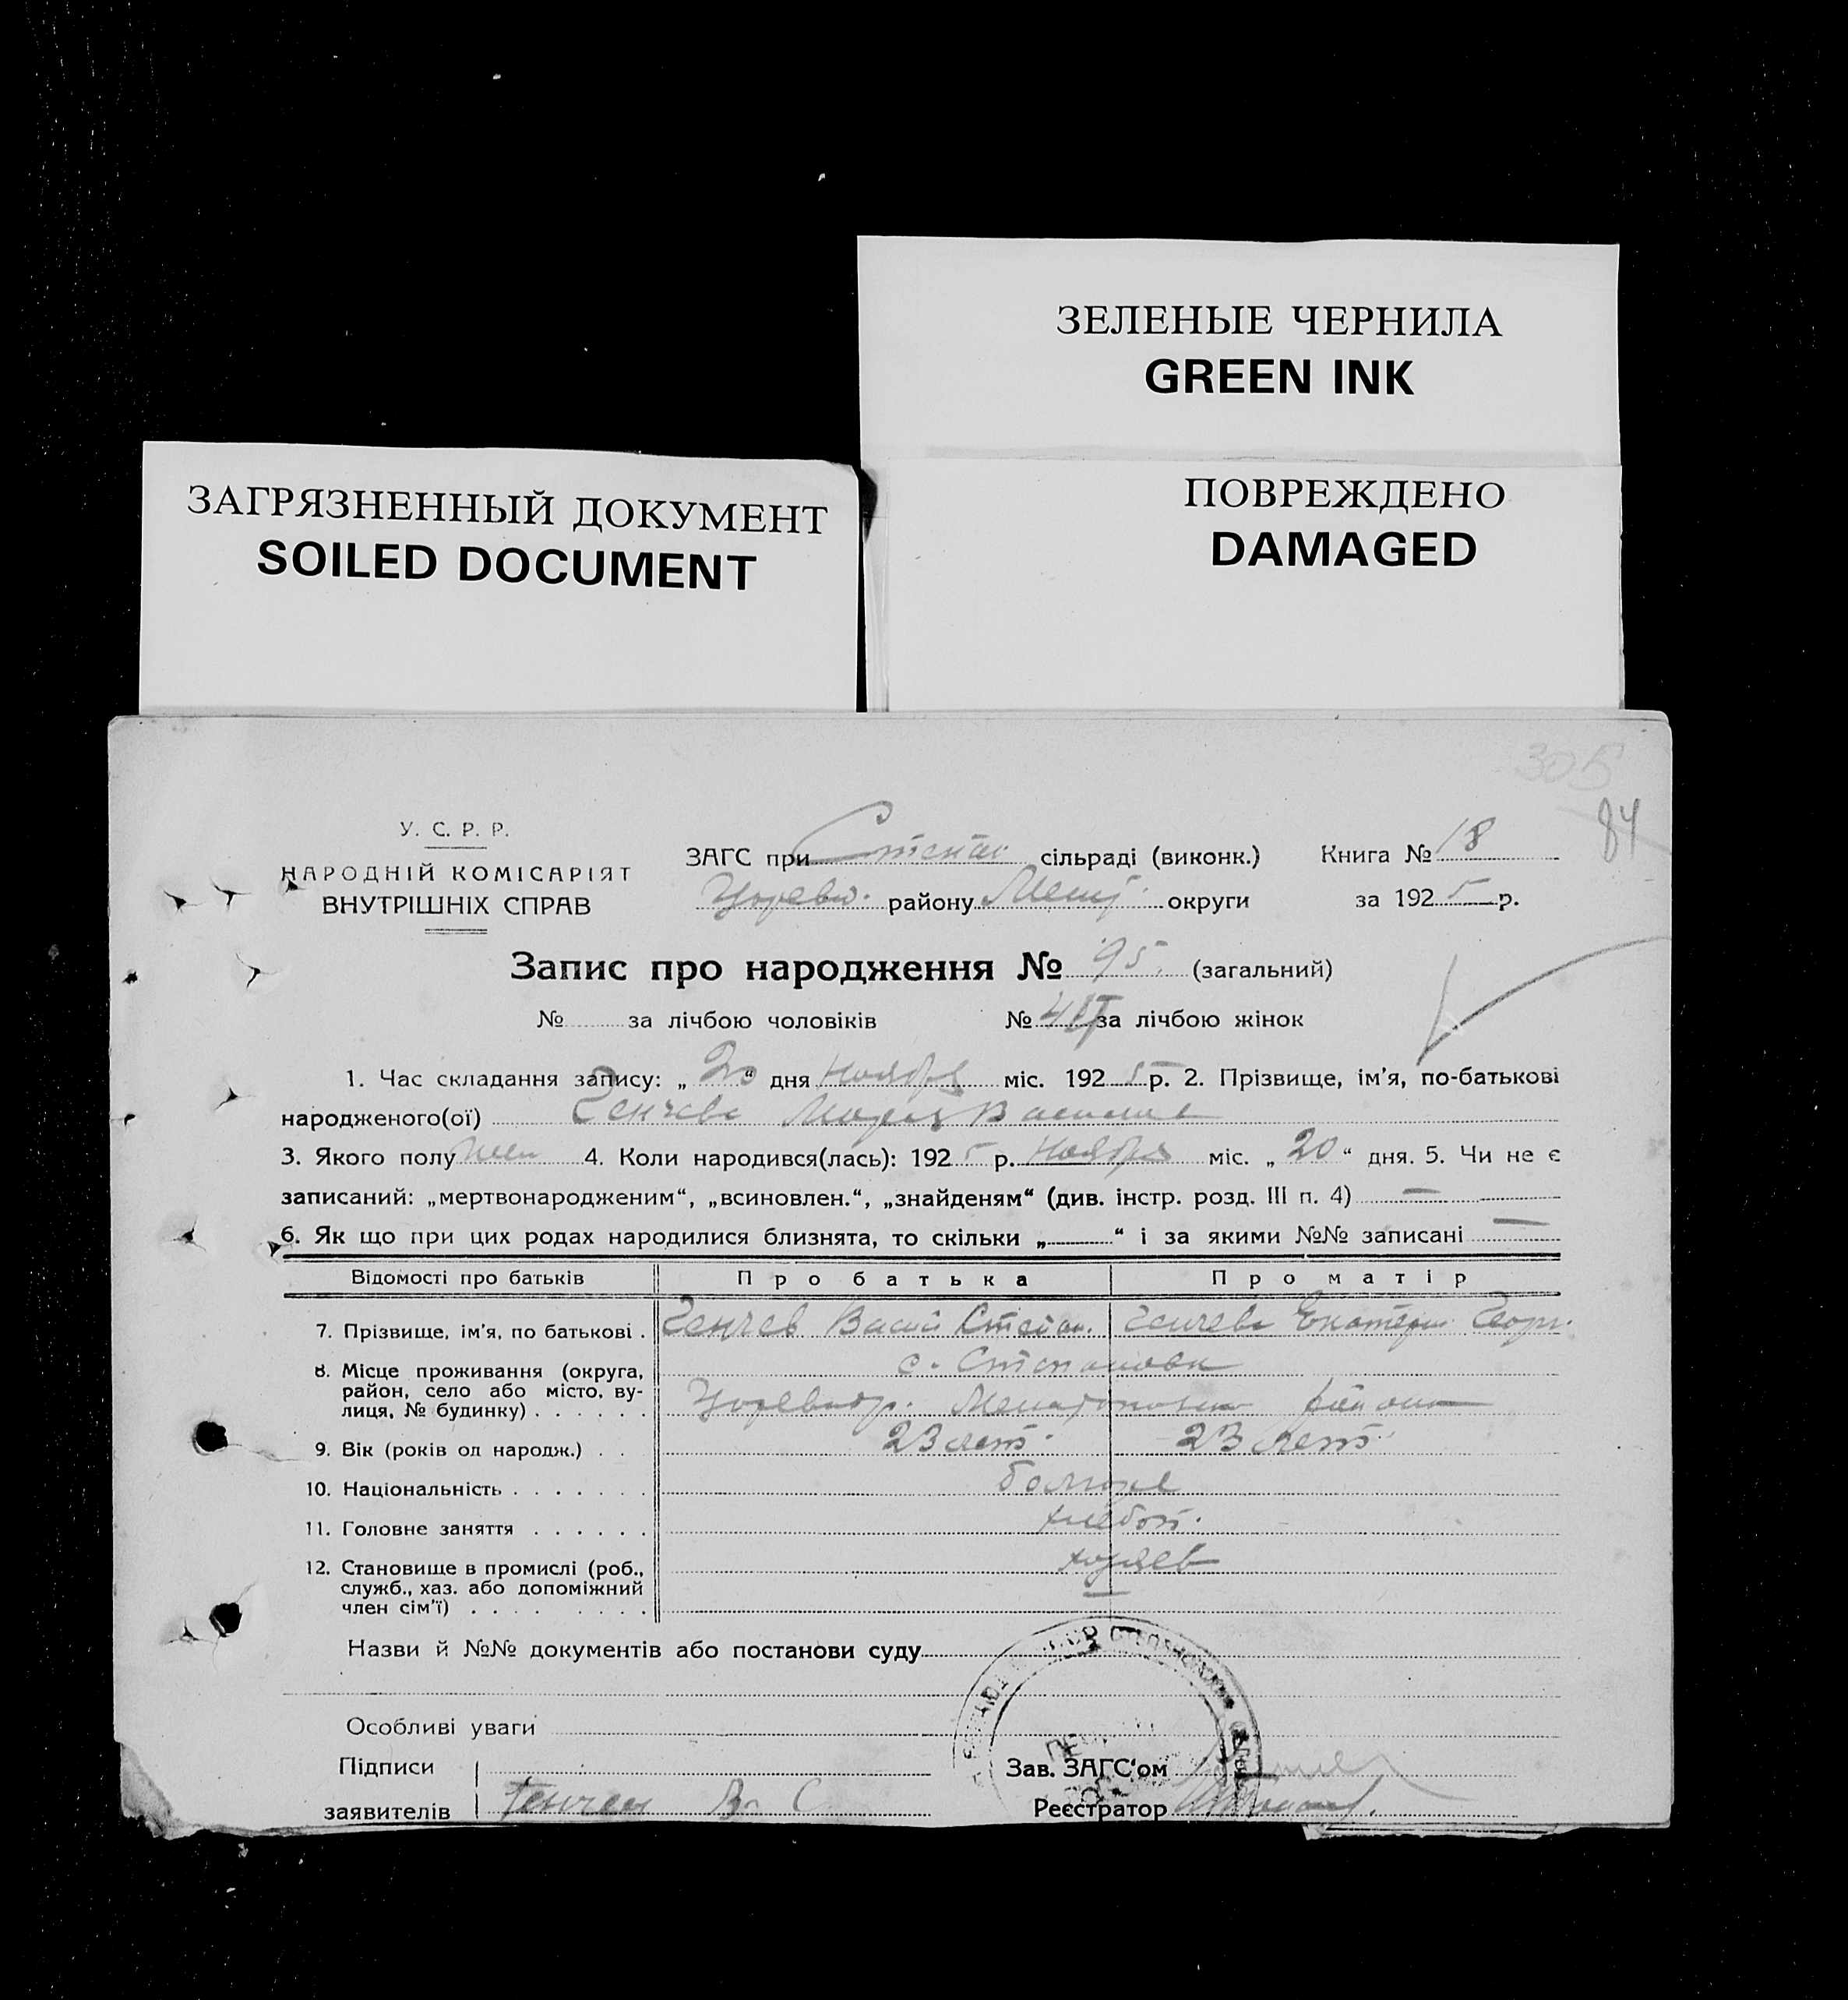 ЗЕЛЕНЫЕ ЧЕРНИЛА
GREEN INK
ЗАГРЯЗНЕННЫЙ ДОКУМЕНТ
SOILED DOCUMENT
ПОВРЕЖДЕНО
DAMAGED
305
84
У. С. Р. Р.
НАРОДНІЙ КОМІСАРІЯТ
ВНУТРІШНІХ СПРАВ
ЗАГС при Степан сільраді (виконк.) Книга № 18
району округи за 1925 р.
Запис про народження № 95. (загальний)
№ за лічбою чоловіків № за лічбою жінок
1. Час складання запису: „20“ дня Ноября міс. 1925 р. 2. Прізвище, ім'я, по-батькові
народженого(ої) Генчева Мария Василие
3. Якого полу жен 4. Коли народився(лась): 1925 р. Ноября міс. „20“ дня. 5. Чи не є
записаний: „мертвонародженим“, „всиновлен.“, „знайденям“ (див. інстр. розд. III п. 4) —
6. Як що при цих родах народилися близнята, то скільки „ “ і за якими №№ записані —
Відомості про батьків Про батька Про матір
7. Прізвище, ім'я, по батькові . Генчев Васил Степан. Генчева Екатери Георг.
с. Степановка
8. Місце проживання (округа,
район, село або місто, ву-
лиця, № будинку) . . . . . .
9. Вік (років од народж.) . . 23 лет. 23 лет.
10. Національність . . . . . . . болгаре
11. Головне заняття . . . . . . хлебоп.
12. Становище в промислі (роб., хозяев
служб., хаз. або допоміжний
член сім'ї) . . . . . . . . .
Назви й №№ документів або постанови суду
Особливі уваги
Підписи
заявителів Генчев В. С
Зав. ЗАГС'ом
Реєстратор